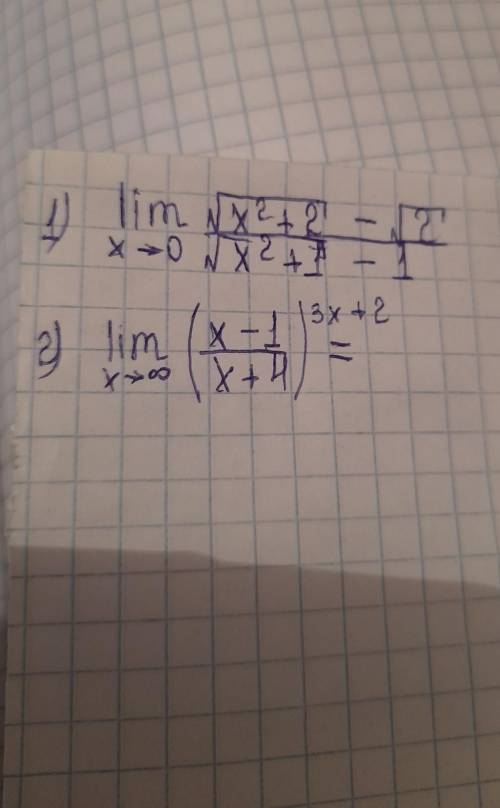 1) lim x→0 (√(x²+2) − √2) / (√(x²+1) − 1)
2) lim x→∞ ((x−1)/(x+4))^(3x+2) =